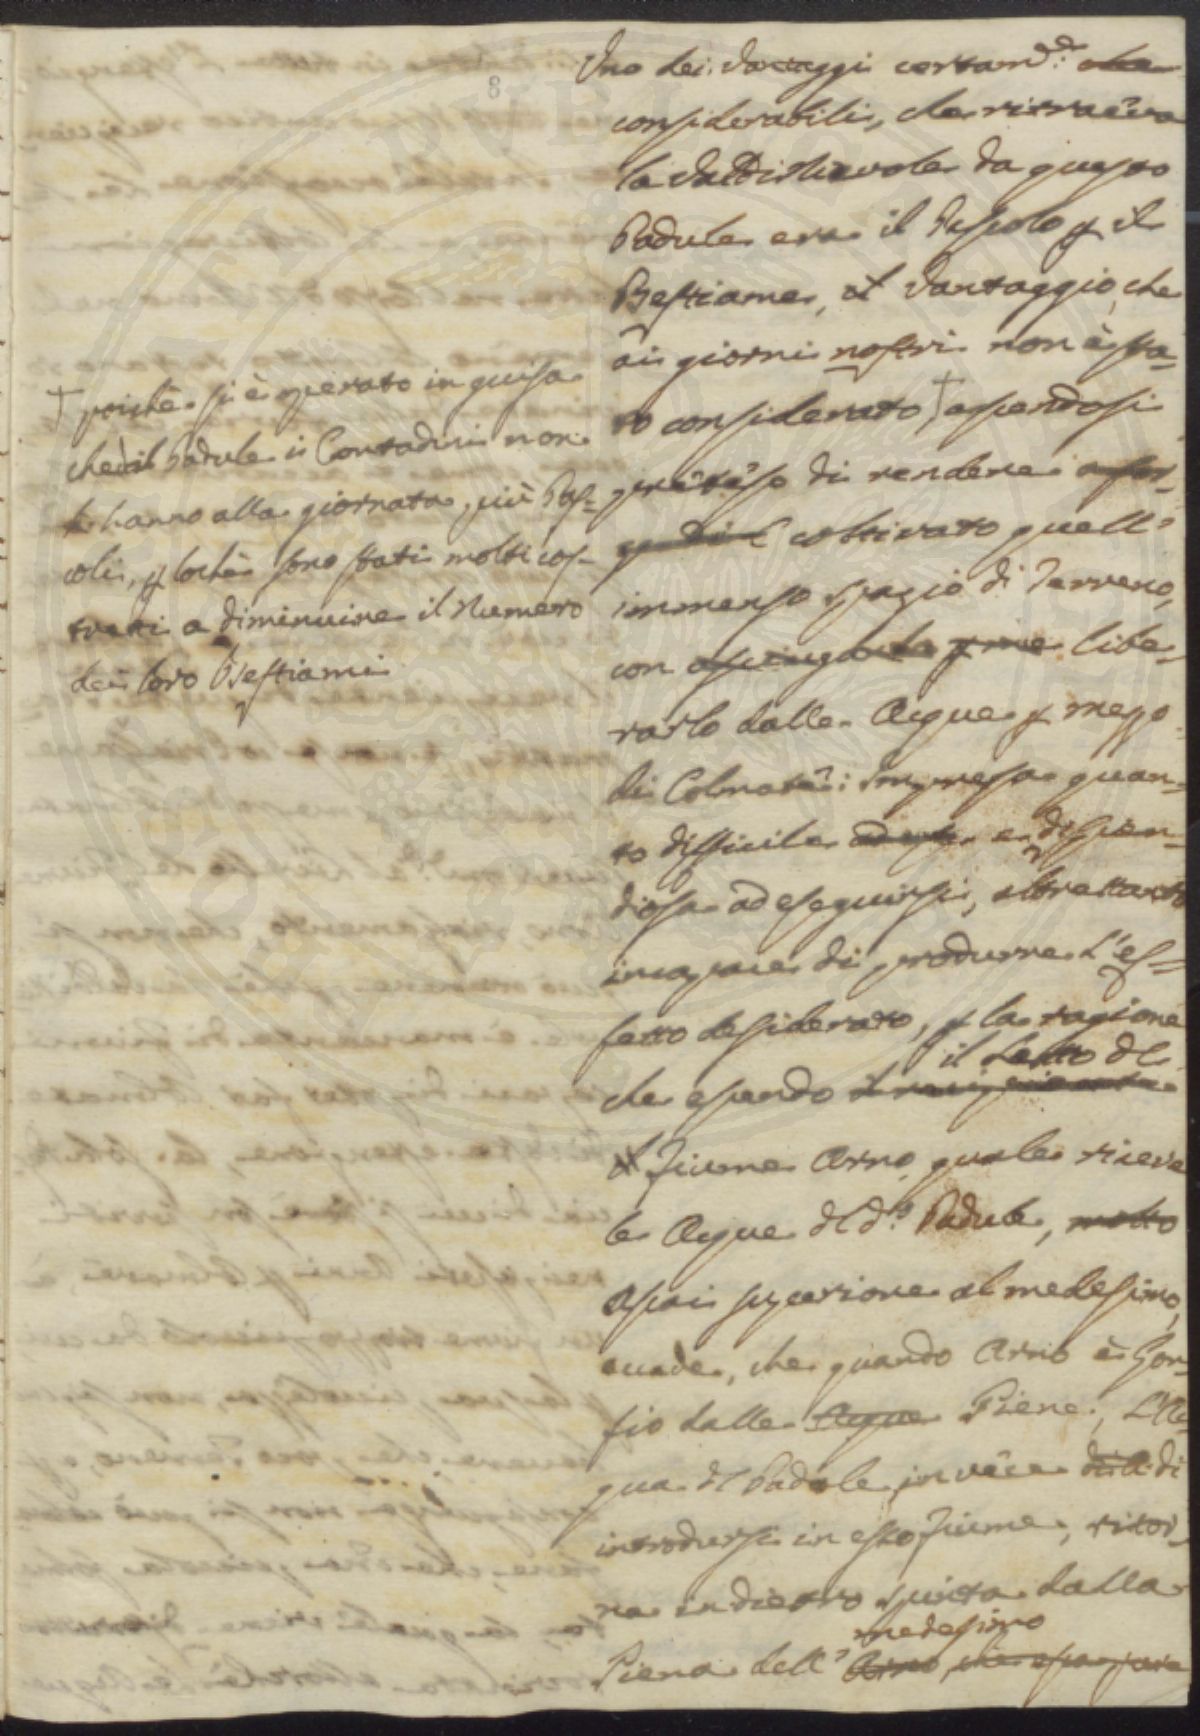 8
Uno dei Vantaggi certam.de che
considerabili, che ritraeva
la Valdinievole da questo
Padule era il Pascolo p il
Bestiame, il Vantaggio, che
ai giorni nostri non è sta=
to considerato † essendosi
preteso di rendere
coltivato quell'
immenso spazio di Terreno,
con libe=
rarlo dalle Acque p mezzo
di Colmate: impresa quan=
to difficile e dispen=
diosa ad eseguirsi, altrettanto
incapace di produrre l'ef=
fetto desiderato, p la ragione
che essendo il Letto del
Fiume Arno, quale riceve
le Acque del d.o Padule, molto
assai superiore al medesimo,
accade, che quando Arno è Gon=
fio dalle Acque Piene, l'Ac=
qua del Padule in vece di
introdursi in esso Fiume, ritor=
na indietro spinta dalla
Piena dell' Arno medesimo
† poichè si è operato in guisa
che dal Padule i Contadini non
hanno alla giornata più Pas=
coli, p lochè sono stati molti cos=
tretti a diminuire il Numero
dei loro Bestiami